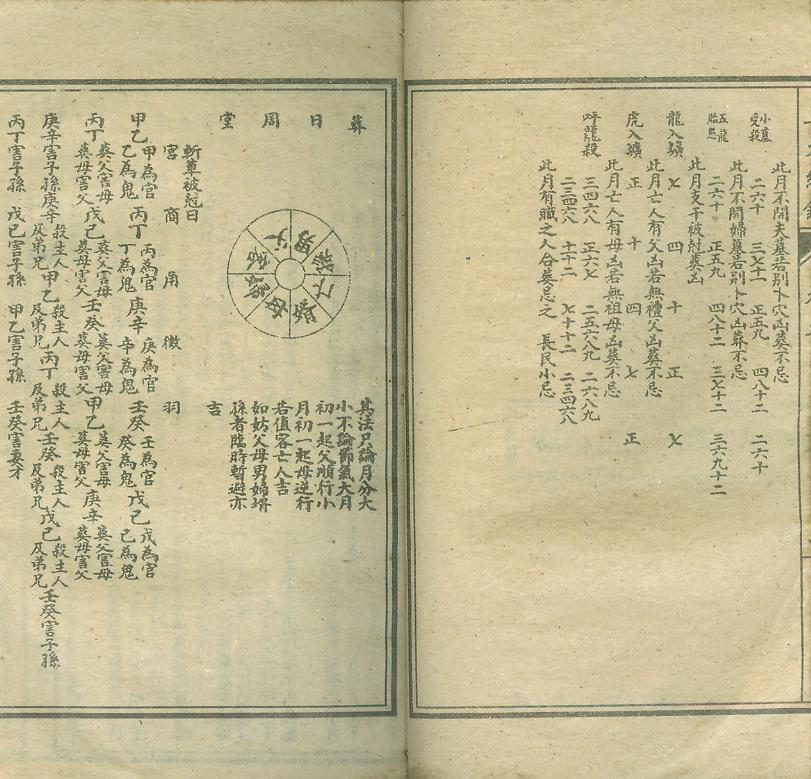 此月不開夫墓若別卜穴凶葬不忌
小墓
受殺
二六十 三七十一 正五九 四八十二 二六十
此月不開婦墓若別卜穴凶葬不忌
五龍
胎忌
二六十 正五九 四八十二 三七十二 三六九十二
此月支干被尅葬凶
龍入壙 七 四 十 正 七
此月亡人有父凶若無禮父凶葬不忌
虎入壙 正 十 四 七 正
此月亡人有母凶若無祖母凶葬不忌
呼龍殺
三四六八 正六七 二五六八九 二六八九
二三四六八 十十二 七十十二 二三四六八
此月有賊之人合葬忌之 長民小忌
葬日周堂
父
男
孫
亡
母
其法只論月分大
小不論節氣大月
初一起父順行小
月初一起母逆行
若值客亡人吉
如姑父母男婦壻
孫者臨時暫避亦
吉
斬草被冠日
宮 商 角 徵 羽
甲乙 甲為官 乙為鬼 丙丁 丙為官 丁為鬼 庚辛 庚為官 辛為鬼 壬癸 壬為官 癸為鬼 戊己 戊為官 己為鬼
丙丁 葬父害母 葬母害父 戊己 葬父害母 葬母害父 壬癸 葬父害母 葬母害父 甲乙 葬父害母 葬母害父 庚辛 葬父害母 葬母害父
庚辛害子孫庚辛 殺主人 及弟兄 甲乙 殺主人 及弟兄 丙丁 殺主人 及弟兄 壬癸 殺主人 及弟兄 戊己 殺主人 及弟兄 壬癸害子孫
丙丁害子孫 戊己害子孫 甲乙害子孫 壬癸害妻才